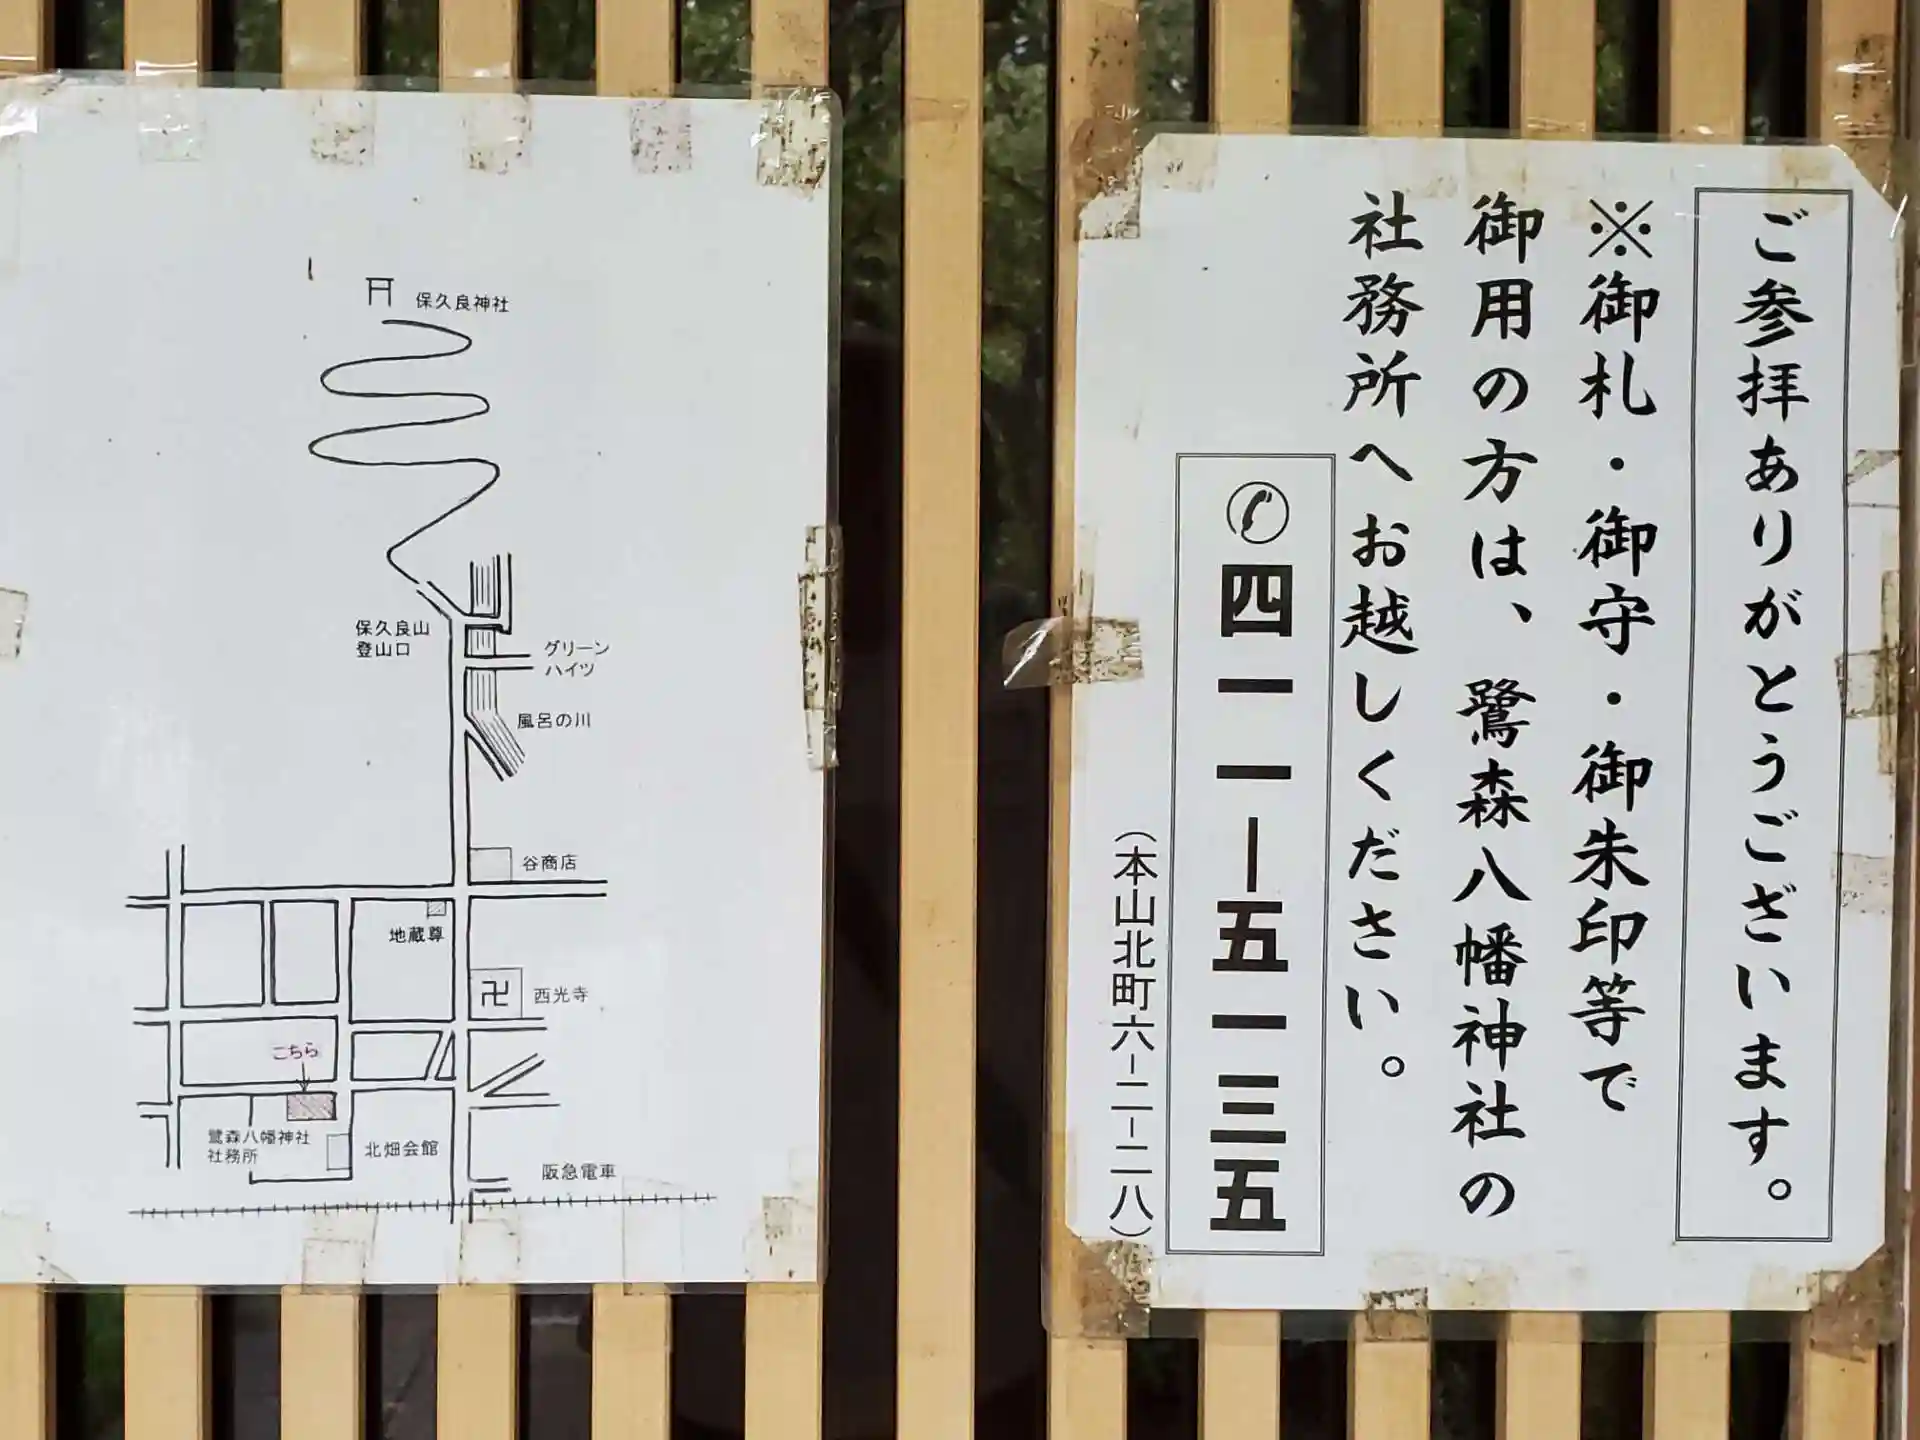 ご参拝ありがとうございます。
※御札・御守・御朱印等で
御用の方は、鷺森八幡神社の
社務所へお越しください。
✆四一一ー五一三五
(本山北町六-二-二八)
保久良神社
保久良山
登山口
グリーン
ハイツ
風呂の川
谷商店
地蔵尊
卍 西光寺
こちら
鷺森八幡神社
社務所
北畑会館
阪急電車